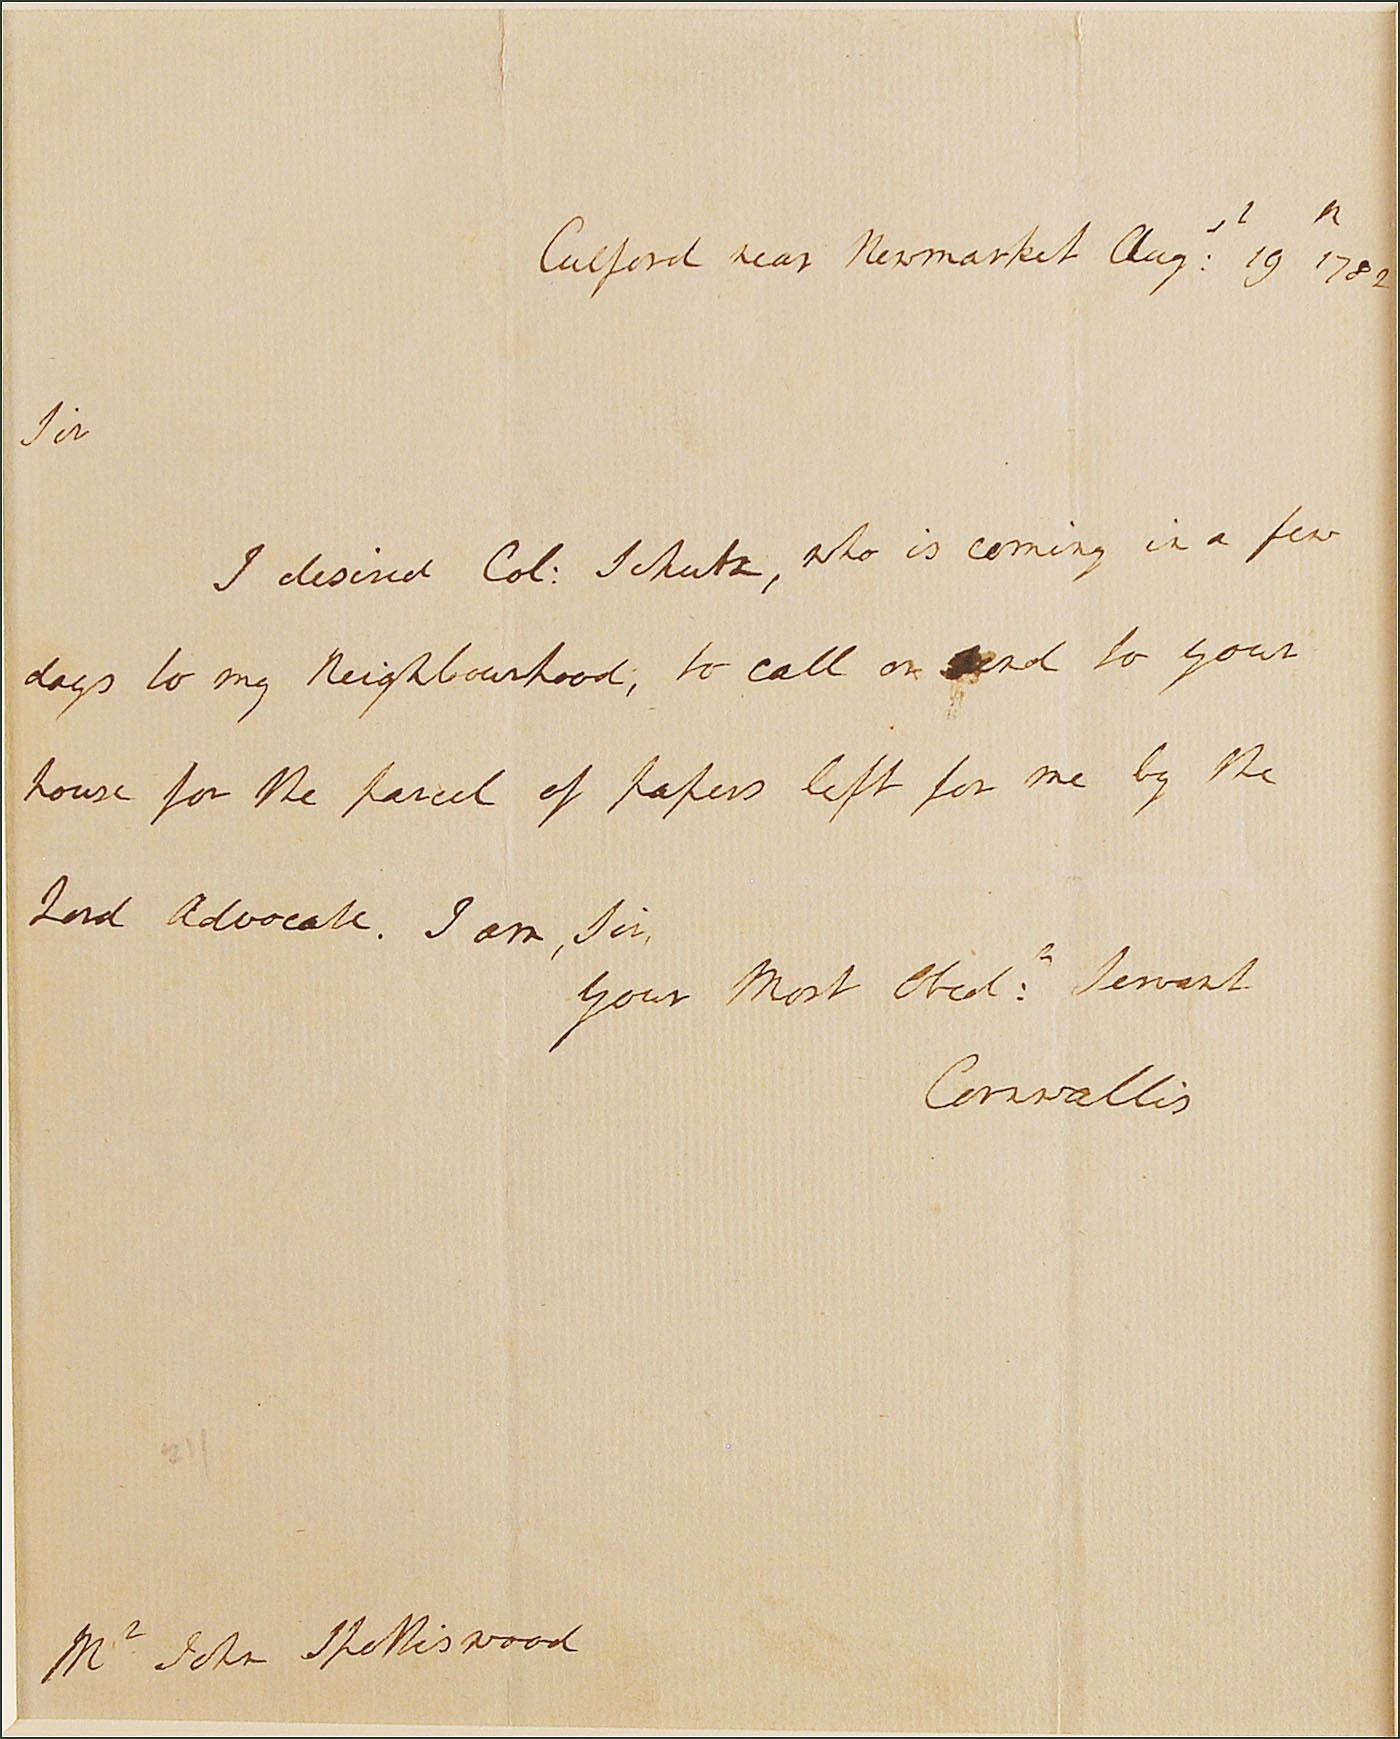 Culford near Newmarket Aug:st 19th 1782
Sir
I desired Col: Schutz, who is coming in a few
days to my Neighbourhood, to call or send to your
house for the parcel of papers left for me by the
Lord Advocate. I am, Sir,
your Most Obed:t Servant
Cornwallis
Mr John Spottiswood